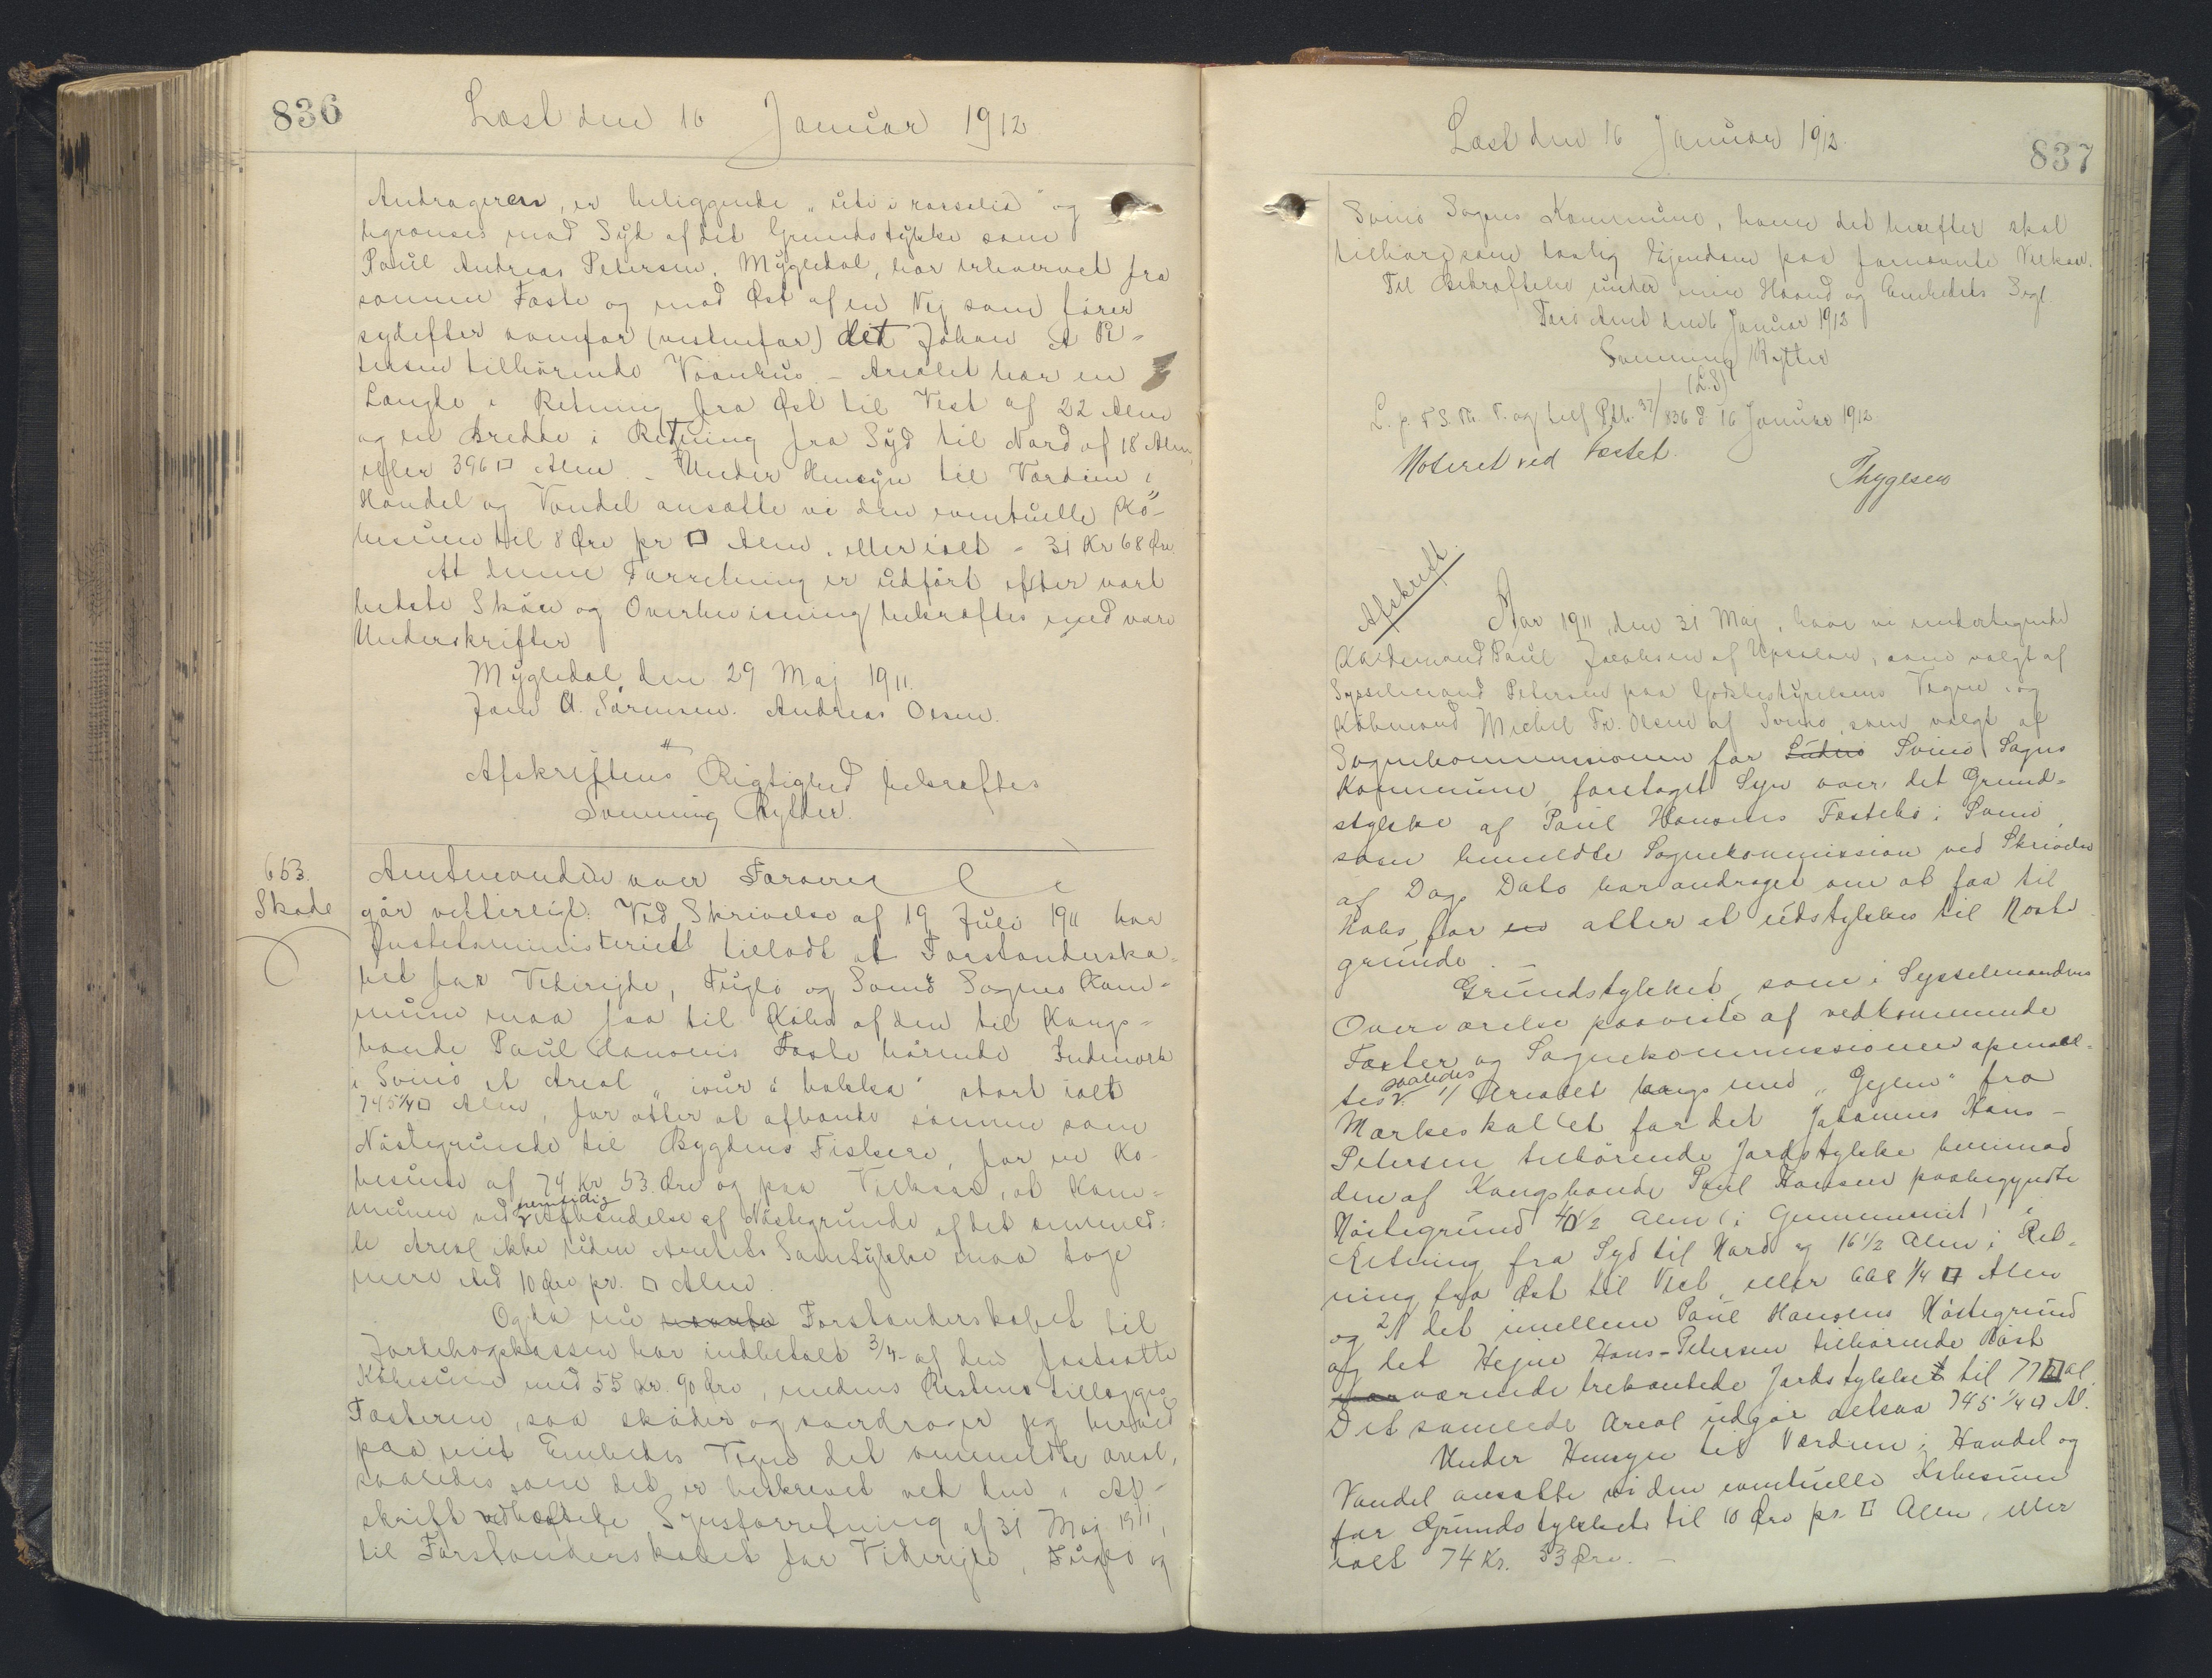 836
Læst den 16 Januar 1912.
Andrageren, er beliggende "uti i rásselið" og
begrænses mod Syd af det Grundstykke som
Poul Andreas Petersen, Mygledal, har erhvervet fra
samme Fæste og mod Øst af en Vej som fører
sydefter ovenfor (vestenfor) det Johan A Pe-
tersen tilhørende Vaanhus. - Arealet har en
Længde i Retning fra Øst til Vest af 22 Alen
og en Bredde i Retning fra Syd til Nord af 18 Alen,
eller 396 □ Alen. - Under Hensyn til Værdien i
Handel og Vandel ansætte vi den eventuelle Kø-
besum til 8 Øre pr □ Alen, eller ialt - 31 Kr 68 Øre
At denne Forretning er udført efter vort
bedste Skøn og Overbevisning bekræftes med vore
Underskrifter
Mygledal den 29 Maj 1911.
Joen A. Sørensen. Andreas Olsen.
Afskriftens Rigtighed bekræftes
Svenning Rytter.
663.
Skøde
Amtmanden over Færøerne
gør vitterligt: Ved Skrivelse af 19 Juli 1911 har
Justitsministeriet tilladt at Forstanderska-
bet for Viderejde, Fuglø og Svinø Sognes Kom-
mune maa faa til Købs af den til Kongs-
bonde Poul Hansens Fæste hørende Indmark
i Svinø et Areal "iour á bakka" stort ialt
745 1/4 □ Alen, for atter at afhænde samme som
Nöstegrunde til Bygdens Fiskere, for en Kø-
besum af 74 Kr 53 Øre og paa Vilkaar, at Kom-
munen ved fremtidig Afhændelse af Nöstegrunde af det ommeld-
te Areal ikke uden Amtets Samtykke maa tage
mere end 10 Øre pr. □ Alen.
Og da nu Forstanderskabet til
Jordebogskassen har indbetalt 3/4 af den fastsatte
Købesum med 55 Kr. 90 Øre, medens Resten tillægges
Fæsteren, saa skøder og overdrager jeg herved
paa mit Embedes Vegne det ommeldte Areal,
saaledes som det er beskrevet ved den i Af-
skrift vedhæftede Synsforretning af 31 Maj 1911,
til Forstanderskabet for Viderejde, Fuglø og
837
Læst den 16 Januar 1912.
Svinø Sognes Kommune, hvem det herefter skal
tilhøre som lovlig Ejendom paa fornævnte Vilkaar.
Til Bekræftelse under min Haand og Embedets Segl
Færø Amt den 6 Januar 1912
Svenning Rytter
(L.S)
L. p. F. S. Th. V. og Prot. 37/836 d. 16 Januar 1912
Noteret ved Fæstet.
Thygesen
Afskrift.
Aar 1911, den 31 Maj, have vi undertegnede
Poul Joensen af Depil, som valgt af
Sysselmand Petersen paa Godsbestyrelsens Vegne, og
Købmand Michel Fr. Olsen af Svinø, som valgt af
Sognekommissionen for Svinø Sogns
Kommune, foretaget Syn over det Grund-
stykke af Poul Hansens Fæstebo i Svinø,
som bemeldte Sognekommission ved Skrivelse
af Dags Dato har andraget om at faa til
Købs for atter at udstykkes til Nöste-
grunde. -
Grundstykket, som i Sysselmandens
Overværelse paaviste af vedkommende
Fæster og Sognekommissionen opmaal-
tes saaledes 1/ Arealet langs med "Gejlen" fra
Markeskallet for det Johannes Hans-
Petersen tilhørende Jordstykke henimod
den af Kongsbonde Poul Hansen paabegyndte
Nöstegrund 40 1/2 Alen (i Gennemsnit) i
Retning fra Syd til Nord og 16 1/2 Alen i Ret-
ning fra Øst til Vest, eller 668 1/4 □ Alen
og 2/ det imellem Poul Hansens Nöstegrund
og det Hejne Hans-Petersen tilhørende Nöst
værende trekantede Jordstykket til 77 □ Al.
Det samlede Areal udgør altsaa 745 1/4 □ Al.
Under Hensyn til Værdien i Handel og
Vandel ansætte vi den eventuelle Købesum
for Grundstykket til 10 Øre pr. □ Alen, eller
ialt 74 Kr. 53 Øre. -